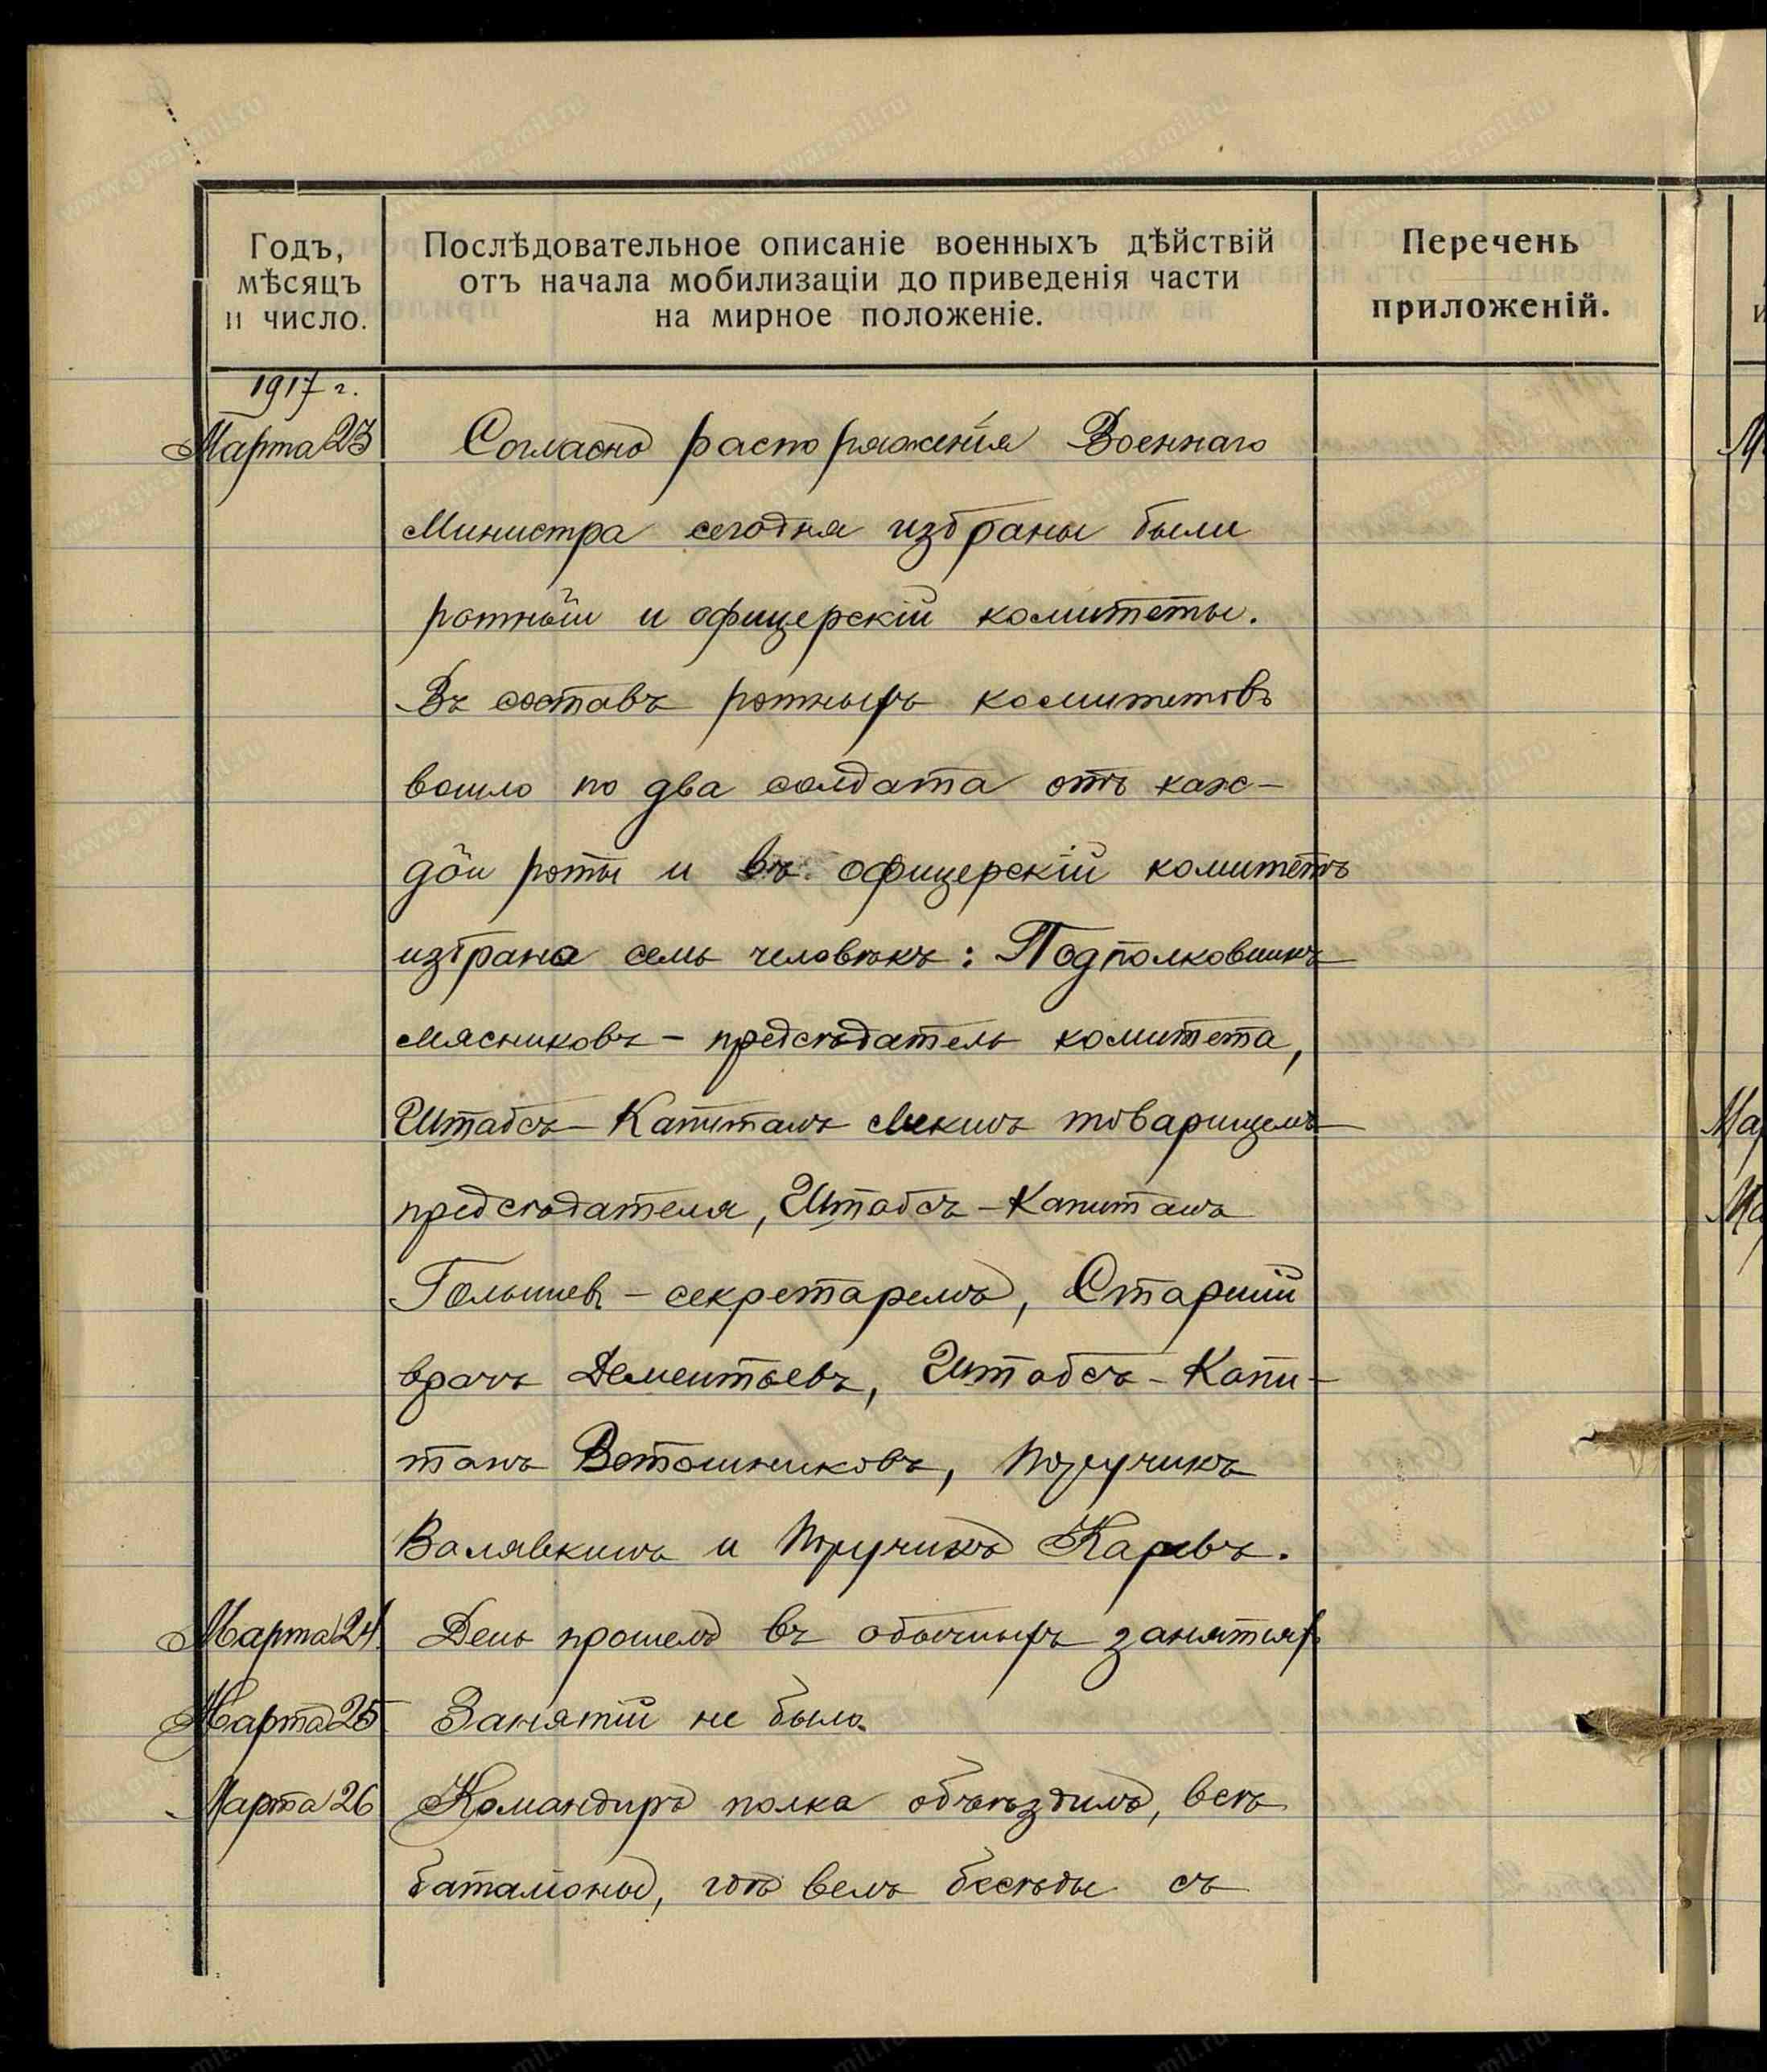 Годъ,
мѣсяцъ
и число.
Послѣдовательное описаніе военныхъ дѣйствій
отъ начала мобилизаціи до приведенія части
на мирное положеніе.
Перечень
приложеній.
1917 г.
Марта 23
Согласно распоряженія Военнаго
Министра сегодня избраны были
ротный и офицерскій комитеты.
Въ составъ ротныхъ комитетовъ
вошло по два солдата отъ каж-
дой роты и въ офицерскій комитетъ
избрано семь человѣкъ: Подполковникъ
Мясниковъ – предсѣдатель комитета,
Штабсъ-Капитанъ товарищемъ
предсѣдателя, Штабсъ-Капитанъ
Голышев – секретаремъ, Старшій
врачъ Дементьевъ, Штабсъ-Капи-
танъ Ветошниковъ, Поручикъ
Валявкинъ и Поручикъ Каревъ.
Марта 24
День прошелъ въ обычныхъ занятіях
Марта 25
Занятій не было.
Марта 26
Командиръ полка объѣздилъ, всѣ
баталіоны, гдѣ велъ бесѣды съ